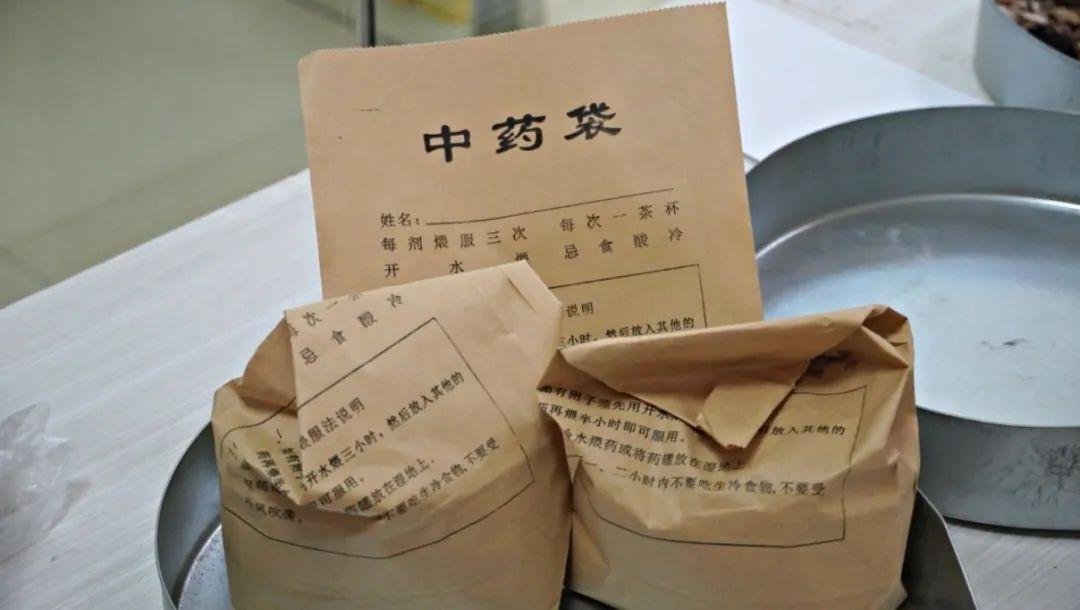 中药袋
姓名：
每剂煨服三次 每次一茶杯
开水 忌食酸冷
说明
三小时，然后放入其他的
每次一茶
忌食酸冷
服法说明
开水煨三小时，然后放入其他的
可服用。
罐放在湿地上。
不要吃生冷食物，不要受
风吹
有附子须先用开水
放入其他的
药再煨半小时即可服用。
冷水煨药或将药罐放在湿地上
二小时内不要吃生冷食物，不要受